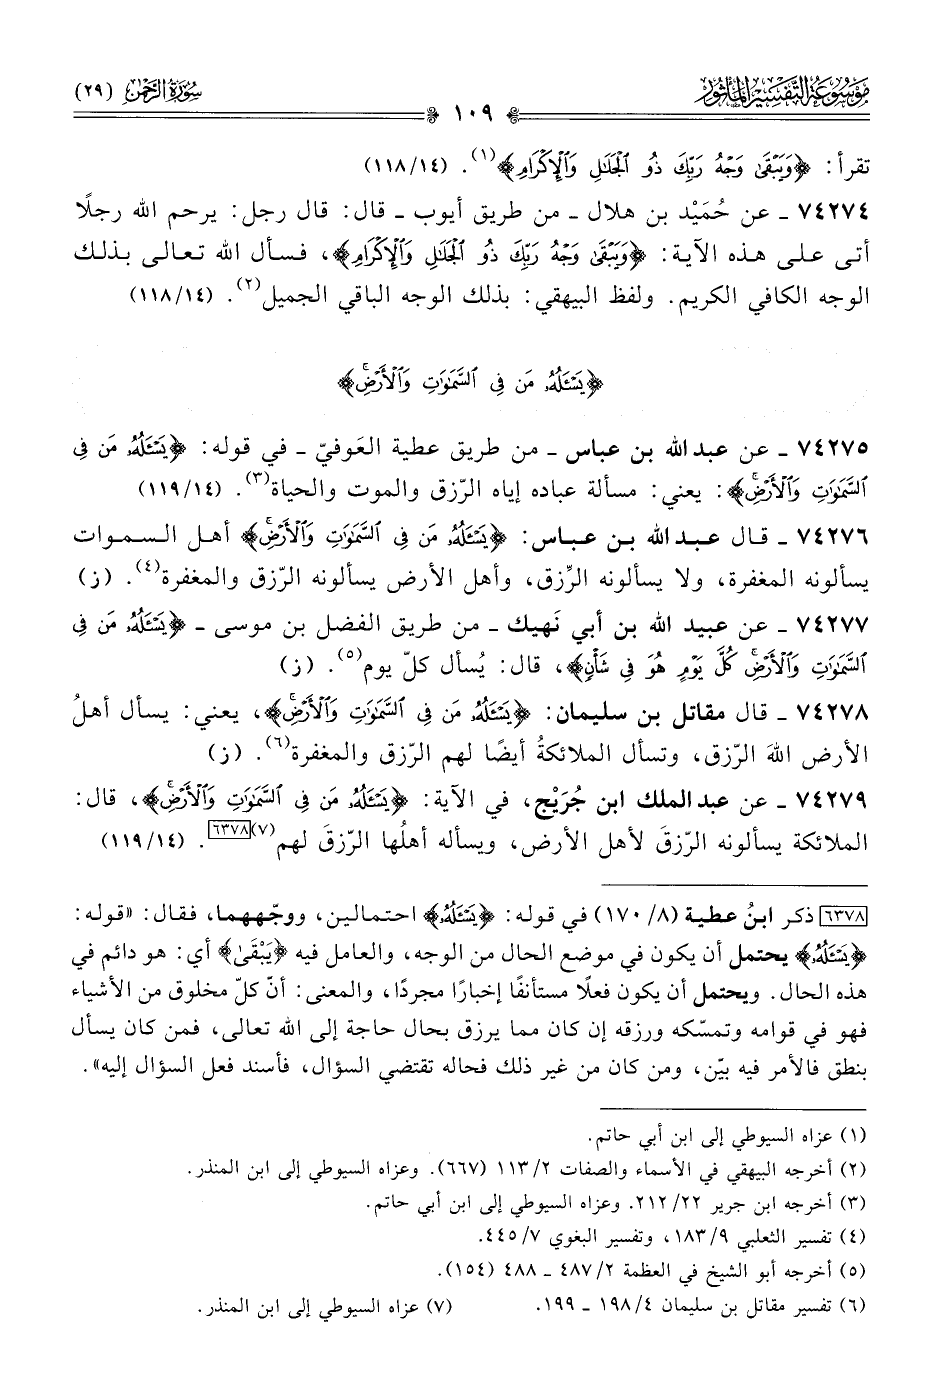 موسوعة التفسير المأثور
سورة الرحمن (٢٩)
١٠٩
تقرأ: ﴿وَيَبْقَىٰ وَجْهُ رَبِّكَ ذُو الْجَلَالِ وَالْإِكْرَامِ﴾(١). (١١٨/١٤)
٧٤٢٧٤ ـ عن حُمَيْد بن هلال ـ من طريق أيوب ـ قال: قال رجل: يرحم الله رجلًا
أتى على هذه الآية: ﴿وَيَبْقَىٰ وَجْهُ رَبِّكَ ذُو الْجَلَالِ وَالْإِكْرَامِ﴾، فسأل الله تعالى بذلك
الوجه الكافي الكريم. ولفظ البيهقي: بذلك الوجه الباقي الجميل(٢). (١١٨/١٤)
﴿يَسْـَٔلُهُۥ مَن فِي السَّمَٰوَٰتِ وَالْأَرْضِۚ﴾
٧٤٢٧٥ ـ عن عبد الله بن عباس ـ من طريق عطية العَوفيّ ـ في قوله: ﴿يَسْـَٔلُهُۥ مَن فِي
السَّمَٰوَٰتِ وَالْأَرْضِۚ﴾: يعني: مسألة عباده إياه الرّزق والموت والحياة(٣). (١١٩/١٤)
٧٤٢٧٦ ـ قال عبد الله بن عباس: ﴿يَسْـَٔلُهُۥ مَن فِي السَّمَٰوَٰتِ وَالْأَرْضِۚ﴾ أهل السموات
يسألونه المغفرة، ولا يسألونه الرِّزق، وأهل الأرض يسألونه الرّزق والمغفرة(٤). (ز)
٧٤٢٧٧ ـ عن عبيد الله بن أبي نَهيك ـ من طريق الفضل بن موسى ـ ﴿يَسْـَٔلُهُۥ مَن فِي
السَّمَٰوَٰتِ وَالْأَرْضِۚ كُلَّ يَوْمٍ هُوَ فِي شَأْنٍ﴾، قال: يُسأل كلّ يوم(٥). (ز)
٧٤٢٧٨ ـ قال مقاتل بن سليمان: ﴿يَسْـَٔلُهُۥ مَن فِي السَّمَٰوَٰتِ وَالْأَرْضِۚ﴾، يعني: يسأل أهلُ
الأرض اللهَ الرّزق، وتسأل الملائكةُ أيضًا لهم الرّزق والمغفرة(٦). (ز)
٧٤٢٧٩ ـ عن عبد الملك ابن جُرَيْج، في الآية: ﴿يَسْـَٔلُهُۥ مَن فِي السَّمَٰوَٰتِ وَالْأَرْضِۚ﴾، قال:
الملائكة يسألونه الرّزقَ لأهل الأرض، ويسأله أهلُها الرّزقَ لهم(٧)[٦٣٧٨]. (١١٩/١٤)
[٦٣٧٨] ذكر ابنُ عطية (١٧٠/٨) في قوله: ﴿يَسْـَٔلُهُۥ﴾ احتمالين، ووجّههما، فقال: «قوله:
﴿يَسْـَٔلُهُۥ﴾ يحتمل أن يكون في موضع الحال من الوجه، والعامل فيه ﴿يَبْقَىٰ﴾ أي: هو دائم في
هذه الحال. ويحتمل أن يكون فعلًا مستأنفًا إخبارًا مجردًا، والمعنى: أنّ كلّ مخلوق من الأشياء
فهو في قوامه وتمسّكه ورزقه إن كان مما يرزق بحال حاجة إلى الله تعالى، فمن كان يسأل
بنطق فالأمر فيه بيّن، ومن كان من غير ذلك فحاله تقتضي السؤال، فأسند فعل السؤال إليه».
(١) عزاه السيوطي إلى ابن أبي حاتم.
(٢) أخرجه البيهقي في الأسماء والصفات ١١٣/٢ (٦٦٧). وعزاه السيوطي إلى ابن المنذر.
(٣) أخرجه ابن جرير ٢١٢/٢٢. وعزاه السيوطي إلى ابن أبي حاتم.
(٤) تفسير الثعلبي ١٨٣/٩، وتفسير البغوي ٤٤٥/٧.
(٥) أخرجه أبو الشيخ في العظمة ٤٨٧/٢ ـ ٤٨٨ (١٥٤).
(٦) تفسير مقاتل بن سليمان ١٩٨/٤ ـ ١٩٩. (٧) عزاه السيوطي إلى ابن المنذر.